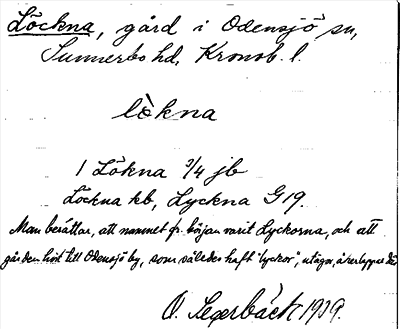 Löckna, gård i Odensjö sn,
Sunnerbo hd, Kronob. l.
lö̀kna
1 Lökna 3/4 jb
Löckna kb, Lyckna G19.
Man berättar, att namnet fr. början varit Lyckorna, och att
gården hört till Odensjö by, som således haft "lyckor", utägor, åkerlappar
O. Segerbäck 1919.